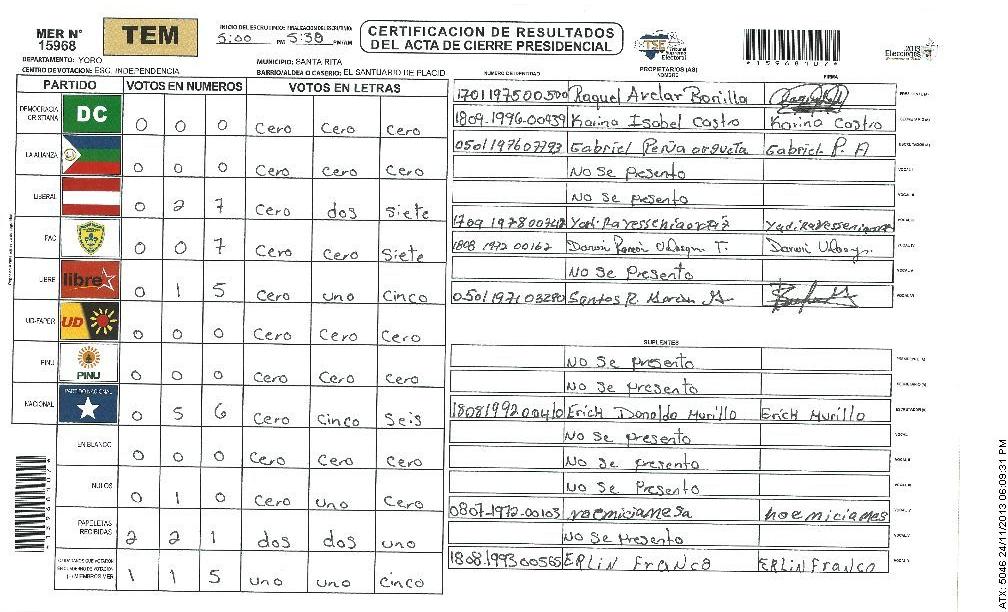 MER N° 15968
TEM
INICIO DEL ESCRUTINIO: FINALIZACION DEL ESCRUTINIO
5:00 PM 5:30 PM/AM
CERTIFICACION DE RESULTADOS
DEL ACTA DE CIERRE PRESIDENCIAL
TSE Tribunal Supremo Electoral
2013
Elecciones
DEPARTAMENTO: YORO
MUNICIPIO: SANTA RITA
CENTRO DE VOTACION: ESC. INDEPENDENCIA
BARRIO/ALDEA O CASERIO: EL SANTUARIO DE FLACID
PARTIDO VOTOS EN NUMEROS VOTOS EN LETRAS
DEMOCRACIA CRISTIANA DC 0 0 0 Cero Cero Cero
LA ALIANZA 0 0 0 Cero Cero Cero
LIBERAL 0 2 7 Cero dos Siete
PAC 0 0 7 Cero Cero Siete
LIBRE libre 0 1 5 Cero uno Cinco
UD-FAPER UD 0 0 0 Cero Cero Cero
PINU PINU 0 0 0 Cero Cero Cero
NACIONAL PARTIDO NACIONAL 0 5 6 Cero Cinco Seis
EN BLANCO 0 0 0 Cero Cero Cero
NULOS 0 1 0 Cero uno Cero
PAPELETAS RECIBIDAS 2 2 1 dos dos uno
1 1 5 uno uno Cinco
NUMERO DE IDENTIDAD PROPIETARIOS (AS) NOMBRE FIRMA
1701197500500 Raquel Avelar Bonilla
1809-1996-00939 Karina Isabel Castro Karina Castro
0501197607793 Gabriel Peña argueta Gabriel P. A
No Se Presento
No Se presento
1709 1978
1808 1972 00162 Darwin
No Se Presento
0501197103280 Santos R.
SUPLENTES
No Se presento
No Se presento
1808199200410 Erick Donaldo Murillo Erick Murillo
No Se presento
No Se presento
No Se Presento
0807-1972-00103 noemiciamesa noemiciames
No Se Presento
1808.1993 00565 ERLin Franco ERLin Franco
ATX: 5046 24/11/2013 06:09:31 PM